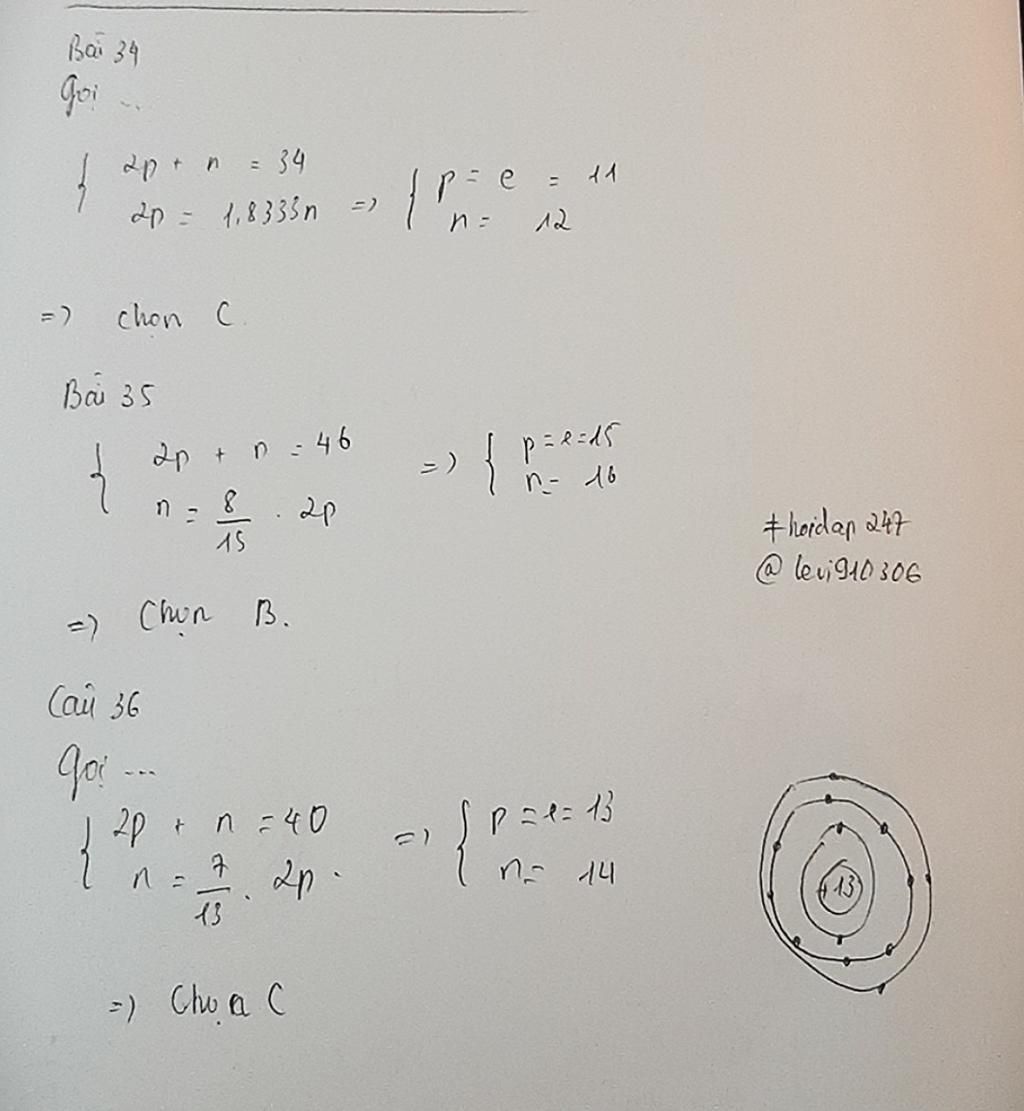 Bài 34
Gọi ...
{ 2p + n = 34
2p = 1,8333n => { p = e = 11
n = 12
=> chọn C.
Bài 35
{ 2p + n = 46 => { p = e = 15
n = 8/15 . 2p n = 16
#hoidap247
@levi910306
=> Chọn B.
Câu 36
Gọi ...
{ 2p + n = 40 => { p = e = 13
n = 7/13 . 2p . n = 14
+13
=> Chọn C